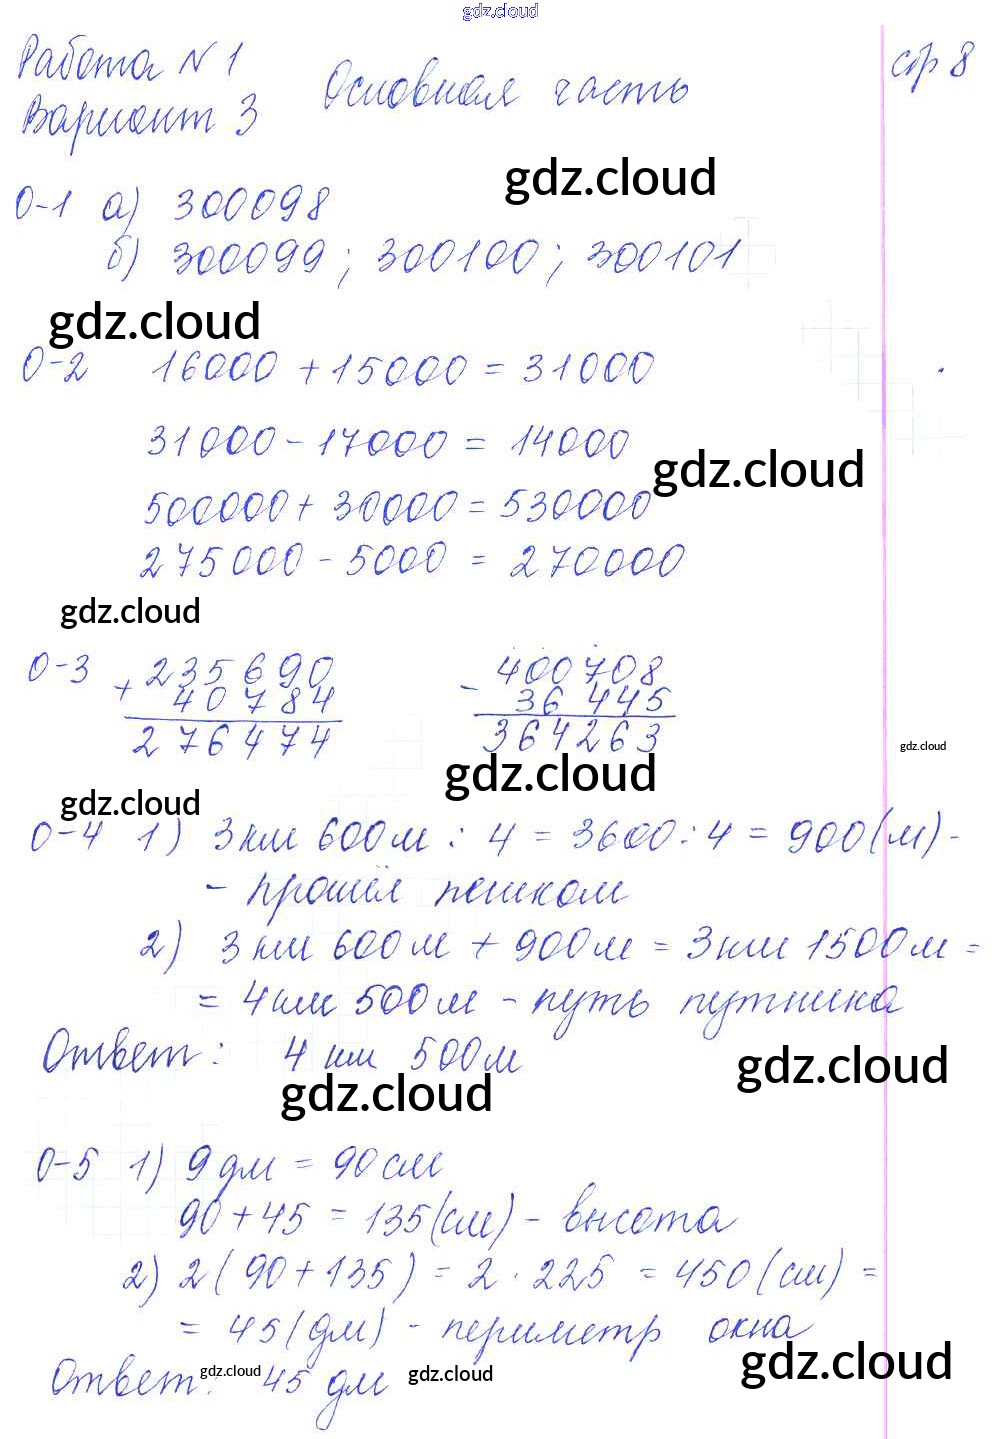 gdz.cloud
Работа N 1 стр 8
Вариант 3 Основная часть
gdz.cloud
0-1 а) 300098
б) 300099; 300100; 300101
gdz.cloud
0-2 16000 + 15000 = 31000
31000 - 17000 = 14000
gdz.cloud
500000 + 30000 = 530000
275000 - 5000 = 270000
gdz.cloud
0-3 + 235690 - 400708
40784 36445
276474 364263
gdz.cloud
gdz.cloud
gdz.cloud
0-4 1) 3 км 600 м : 4 = 3600 : 4 = 900 (м) -
- прошёл пешком
2) 3 км 600 м + 900 м = 3 км 1500 м =
= 4 км 500 м - путь путника
Ответ: 4 км 500 м
gdz.cloud
gdz.cloud
0-5 1) 9 дм = 90 см
90 + 45 = 135 (см) - высота
2) 2 (90 + 135) = 2 · 225 = 450 (см) =
= 45 (дм) - периметр окна
gdz.cloud
Ответ: 45 дм
gdz.cloud
gdz.cloud